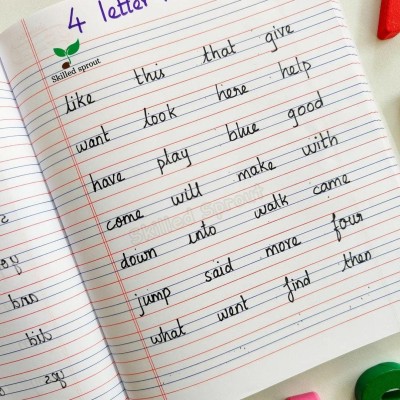 4 letter
Skilled sprout
like this that give
want look here help
have play blue good
come will make with
Skilled Sprout
down into walk came
jump said more four
what went find then
bro
bib